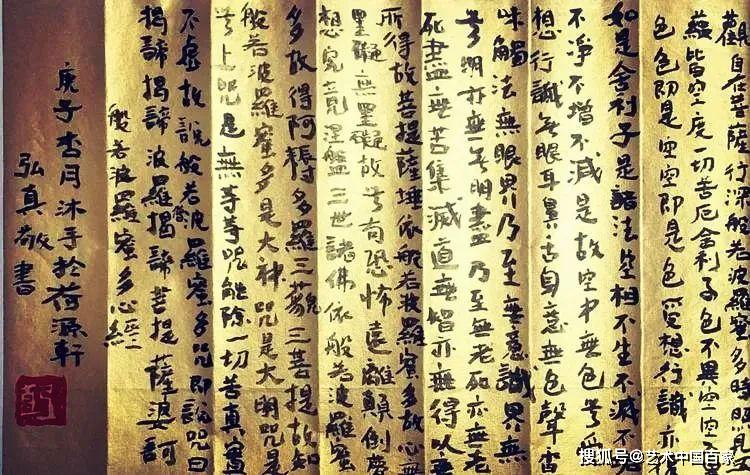 觀自在菩薩行深般若波羅蜜多時照見
蘊皆空度一切苦厄舍利子色不異空空不
色色即是空空即是色受想行識亦
如是舍利子是諸法空相不生不滅不
不淨不增不減是故空中無色無受
想行識無眼耳鼻舌身意無色聲香
味觸法無眼界乃至無意識界無
無明亦無無明盡乃至無老死亦無老
死盡無苦集滅道無智亦無得以無
所得故菩提薩埵依般若波羅蜜多故心無
罣礙無罣礙故無有恐怖遠離顛倒夢
想究竟涅盤三世諸佛依般若波羅蜜
多故得阿耨多羅三藐三菩提故知
般若波羅蜜多是大神咒是大明咒是
無上咒是無等等咒能除一切苦真實
不虛故說般若波羅蜜多咒即說咒曰
揭諦揭諦波羅揭諦菩提薩婆訶
般若波羅蜜多心經
庚子杏月沐手於荷源軒
弘真敬書
搜狐号@艺术中国百家